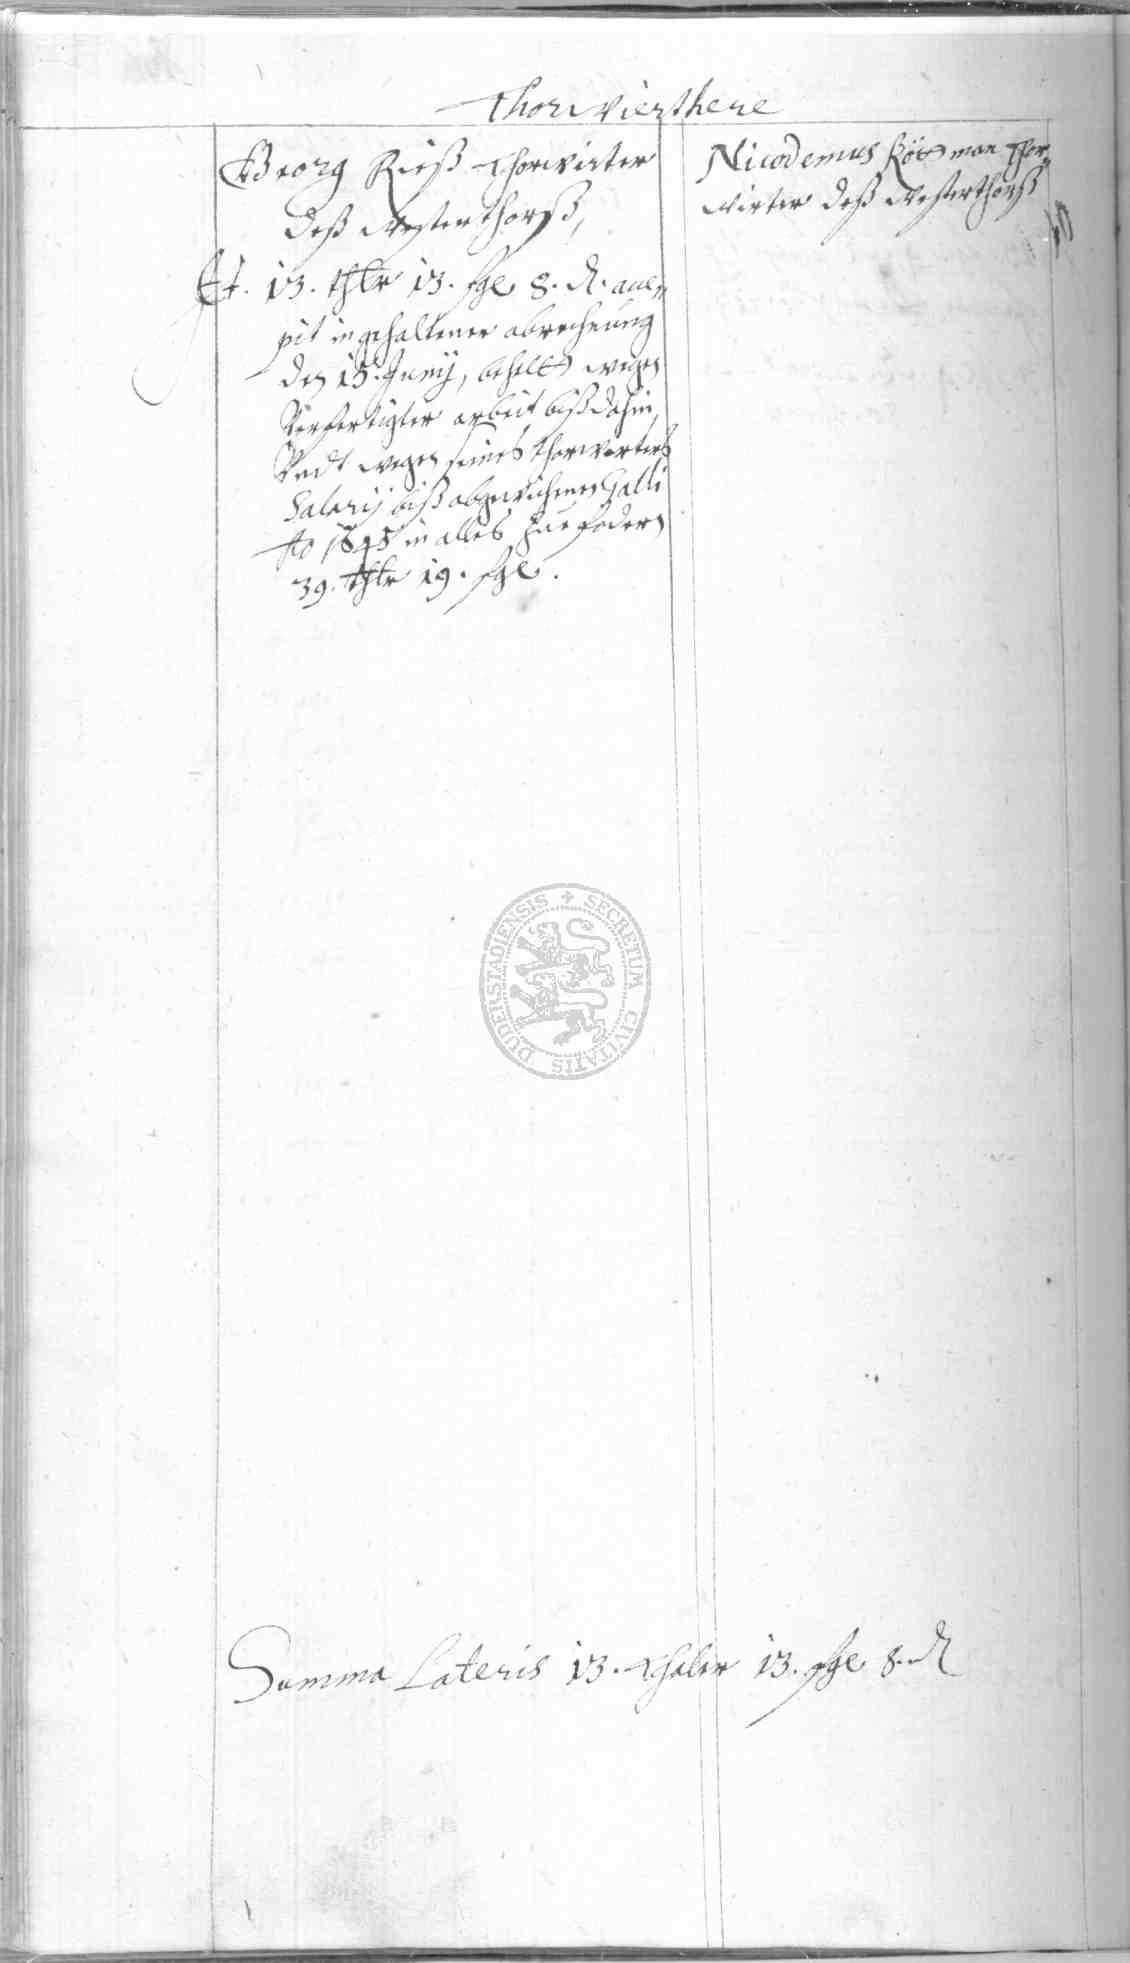 Thorwierthere
Georg Rieß Thorwirter
deß Westerthorß,
It. 13. thlr 13. sgl 8. d. acce„
pit in gehaltener abrechnung
den 15. Junij, behelt wegen
Verfertigter arbeit biß dahin,
Vndt wegen seines thorwarters
Salarij biß abgewichenen Galli
Ao 1648 in alles zue fodern
39. thlr 19. sgl.
Nicodemus Rötman Thor„
wirter deß Westerthorß
Summa Lateris 13. Thaler 13. sgl 8. d
SECRETUM CIVITATIS DUDERSTADIENSIS